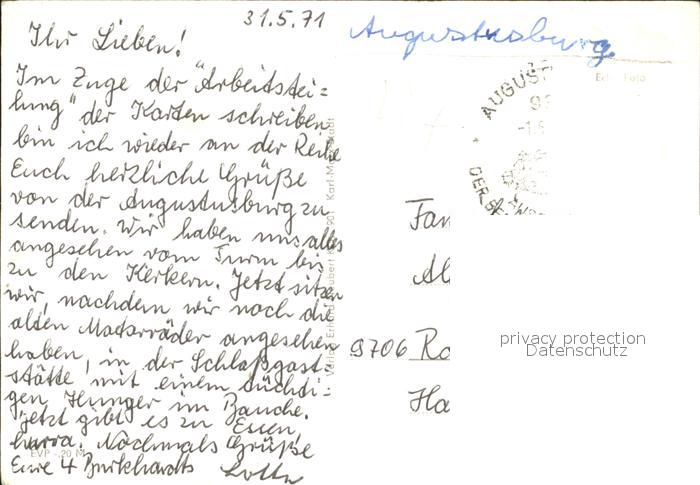 31.5.71
Ihr Lieben!
Im Zuge der "Arbeitstei=
lung" der Karten schreiben
bin ich wieder an der Reihe
Euch herzliche Grüße
von der Augustusburg zu
senden. Wir haben uns alles
angesehen vom Turm bis
zu den Kerkern. Jetzt sitzen
wir, nachdem wir noch die
alten Motorräder angesehen
haben, in der Schloßgast=
stätte mit einem tüchti=
gen Hunger im Bauche.
Jetzt gibt es zu Essen,
hurra. Nochmals Grüße
Eure 4 Burkhardts Lotte
EVP -,20 M
Augustusburg
Echt Foto
AUGUST
DER
Fam
9706 Ro
Ha
privacy protection
Datenschutz